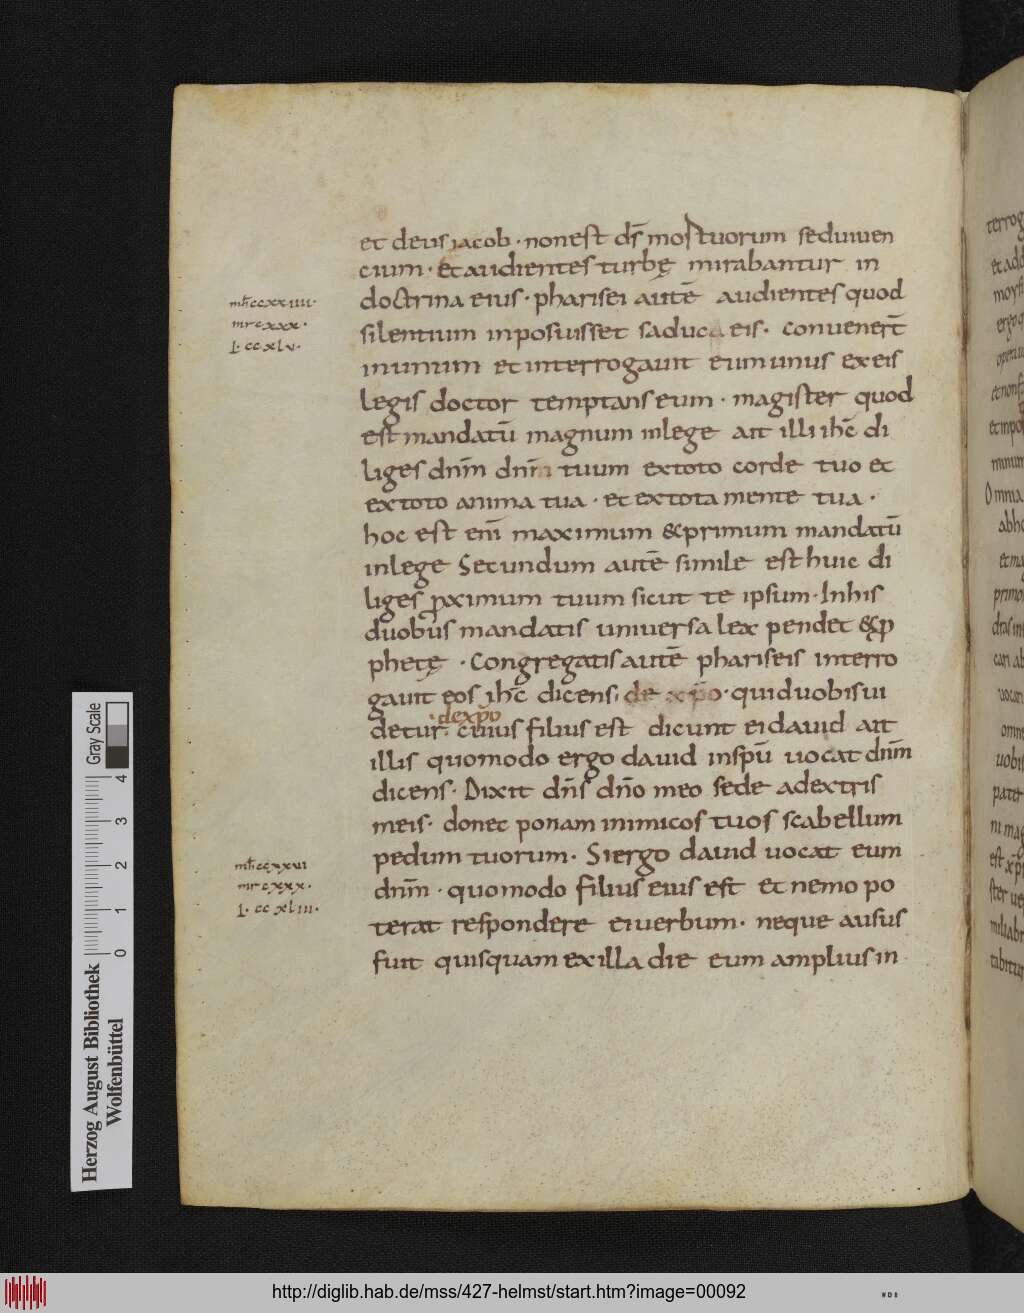 et deus iacob · non est ds̄ mortuorum sed uiuen
cium · Et audientes turbę mirabantur in
doctrina eius · pharisei autē audientes quod
silentium inposiuisset saduca eis · conuenerт̄
in unum et interrogauit eum unus ex eis
legis doctor temptans eum · magister quod
est mandatū magnum in lege ait illi ihc̄ di
liges dnm̄ dnm̄ tuum ex toto corde tuo et
ex toto anima tua · et ex tota mente tua ·
hoc est enī maximum & primum mandatū
in lege Secundum autē simile est huic di
liges ꝓximum tuum sicut te ipsum · In his
duobus mandatis uniuersa lex pendet & ꝓ
phetę · Congregatis autē phariseis interro
gauit eos ihc̄ dicens de xp̄o · quid uobis ui
de xp̄o
detur · cuius filius est dicunt ei dauid ait
illis quomodo ergo dauid in spū uocat dnm̄
dicens · Dixit dn̄s dn̄o meo sede a dextris
meis · donec ponam inimicos tuos scabellum
pedum tuorum · Si ergo dauid uocat eum
dnm̄ · quomodo filius eius est et nemo po
terat respondere ei uerbum · neque ausus
fuit quisquam ex illa die eum amplius in
mh̄ ccxxiiii ·
mr cxxx ·
l · ccxlv ·
mh̄ ccxxvi
mr cxxx ·
l · ccxliii ·
Herzog August Bibliothek
Wolfenbüttel
Gray Scale
0 1 2 3 4
http://diglib.hab.de/mss/427-helmst/start.htm?image=00092